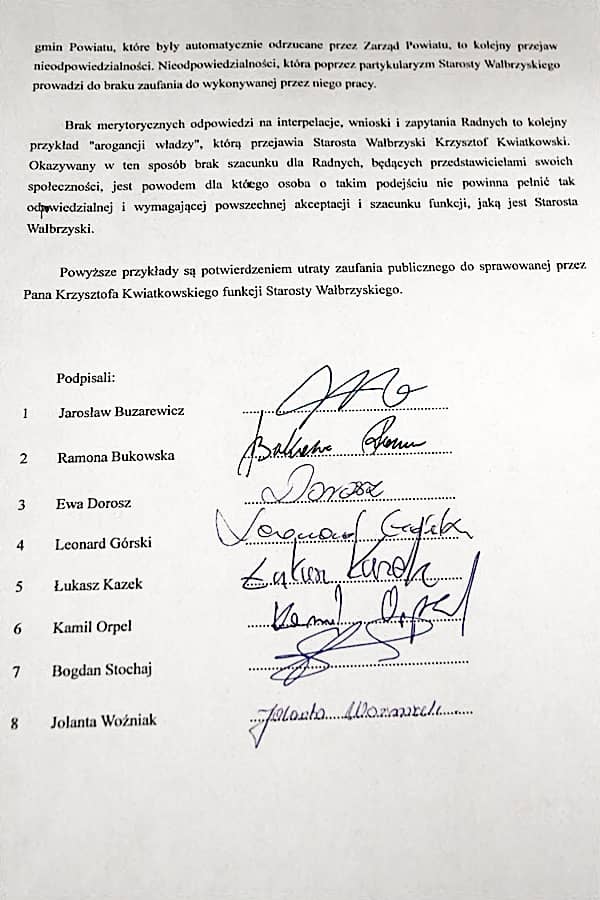 gmin Powiatu, które były automatycznie odrzucane przez Zarząd Powiatu, to kolejny przejaw
nieodpowiedzialności. Nieodpowiedzialności, która poprzez partykularyzm Starosty Wałbrzyskiego
prowadzi do braku zaufania do wykonywanej przez niego pracy.
Brak merytorycznych odpowiedzi na interpelacje, wnioski i zapytania Radnych to kolejny
przykład "arogancji władzy", którą przejawia Starosta Wałbrzyski Krzysztof Kwiatkowski.
Okazywany w ten sposób brak szacunku dla Radnych, będących przedstawicielami swoich
społeczności, jest powodem dla któego osoba o takim podejściu nie powinna pełnić tak
odpwiedzialnej i wymagającej powszechnej akceptacji i szacunku funkcji, jaką jest Starosta
Wałbrzyski.
Powyższe przykłady są potwierdzeniem utraty zaufania publicznego do sprawowanej przez
Pana Krzysztofa Kwiatkowskiego funkcji Starosty Wałbrzyskiego.
Podpisali:
1 Jarosław Buzarewicz
2 Ramona Bukowska
3 Ewa Dorosz Dorosz
4 Leonard Górski
5 Łukasz Kazek Łukasz Kazek
6 Kamil Orpel Kamil Orpel
7 Bogdan Stochaj
8 Jolanta Woźniak Jolanta Woźniak